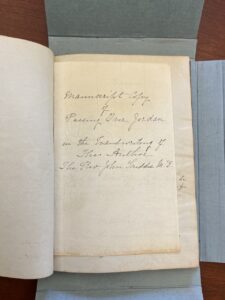 Manuscript Copy
of
Passing Over Jordan
in the Handwriting of
The Author
The Rev John